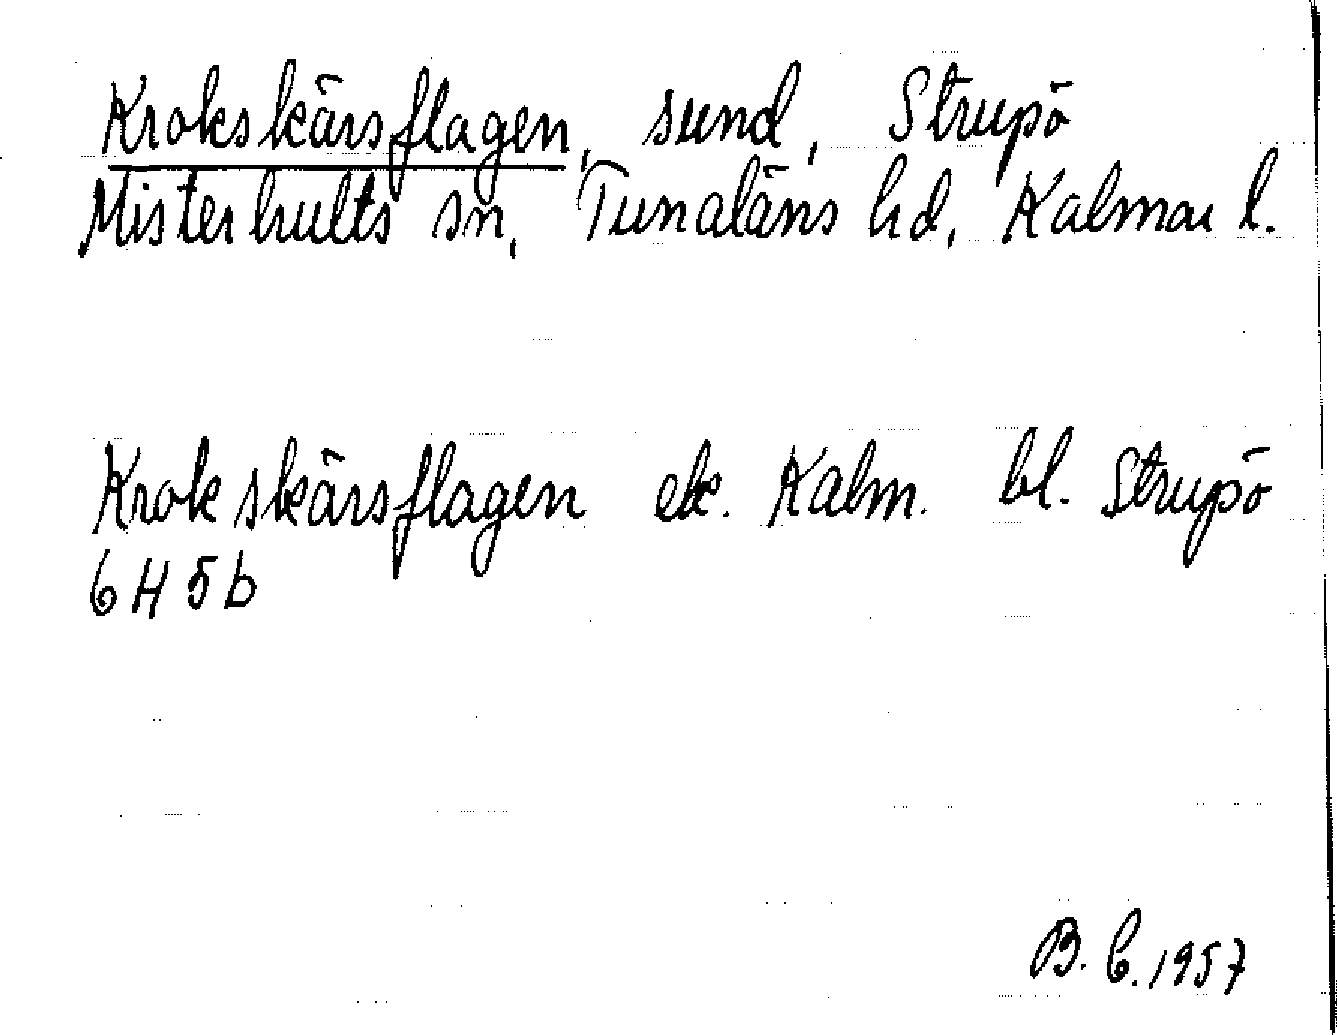 Krokskärsflagen, sund, Strupö
Misterhults sn, Tunaläns hd, Kalmar l.
Krokskärsflagen ek. Kalm. bl. Strupö
6 H 5 b
B. C. 1957